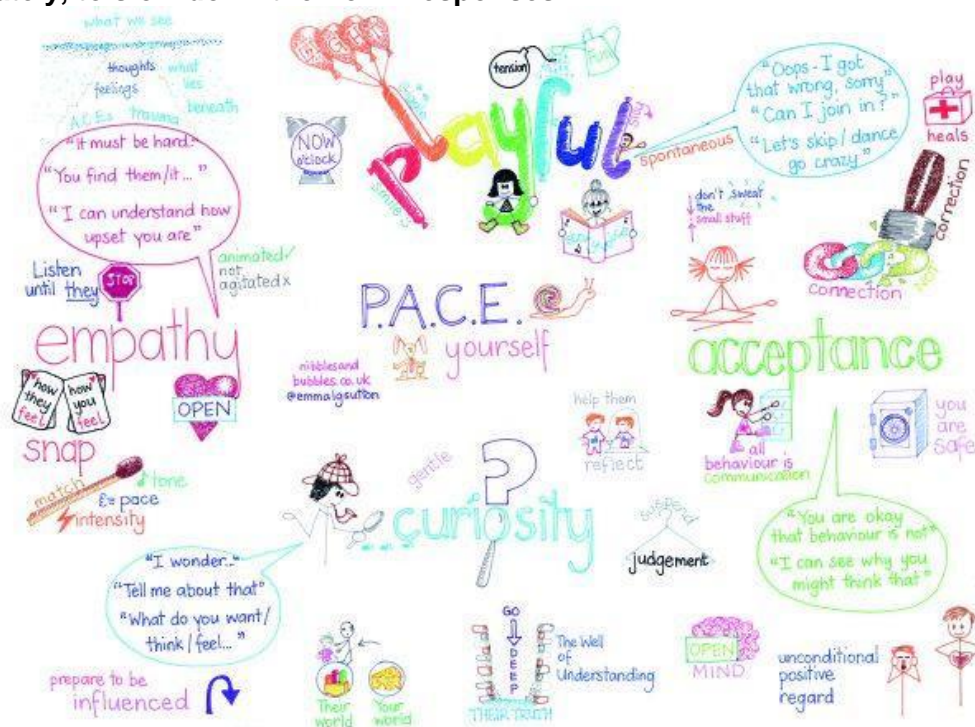 what we see
thoughts
feelings
what
lies
beneath
A.C.Es
trauma
"it must be hard."
"You find them/it..."
"I can understand how
upset you are"
Listen
until they
STOP
animated ✓
not
agitated x
empathy
how
they
feel
how
you
feel
OPEN
snap
match
tone
pace
intensity
NOW
o'clock
playful
smile
tension
fun
silly
spontaneous
"Oops - I got
that wrong, sorry"
"Can I join in?"
"Let's skip / dance
go crazy"
play
heals
don't sweat
the
small stuff
correction
connection
P.A.C.E.
yourself
nibblesand
bubbles.co.uk
@emmalgsutton
acceptance
all
behaviour is
communication
you
are
safe
"You are okay
that behaviour is not"
"I can see why you
might think that"
help them
reflect
gentle
?
...curiosity
suspend
judgement
"I wonder.."
"Tell me about that"
"What do you want/
think / feel..."
prepare to be
influenced
Their
world
Your
world
GO
DEEP
The Well
of
Understanding
THEIR TRUTH
OPEN
MIND
unconditional
positive
regard